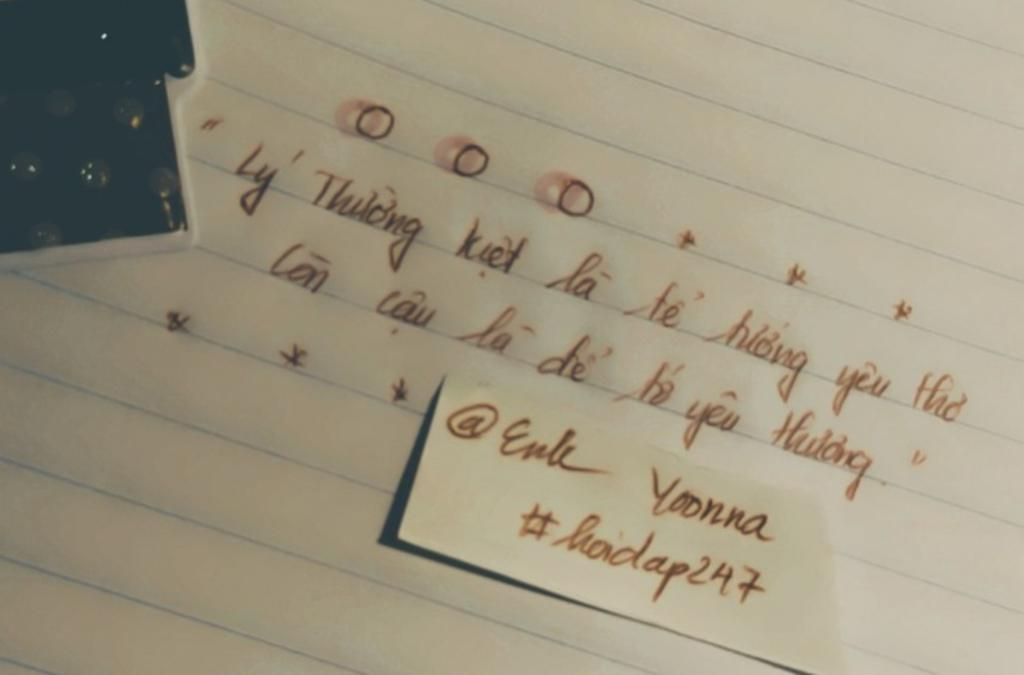 " Lý Thường kiệt là tể tướng yêu thơ
Còn cậu là để tớ yêu thương. "
@Enk Yoonna
#hoidap247